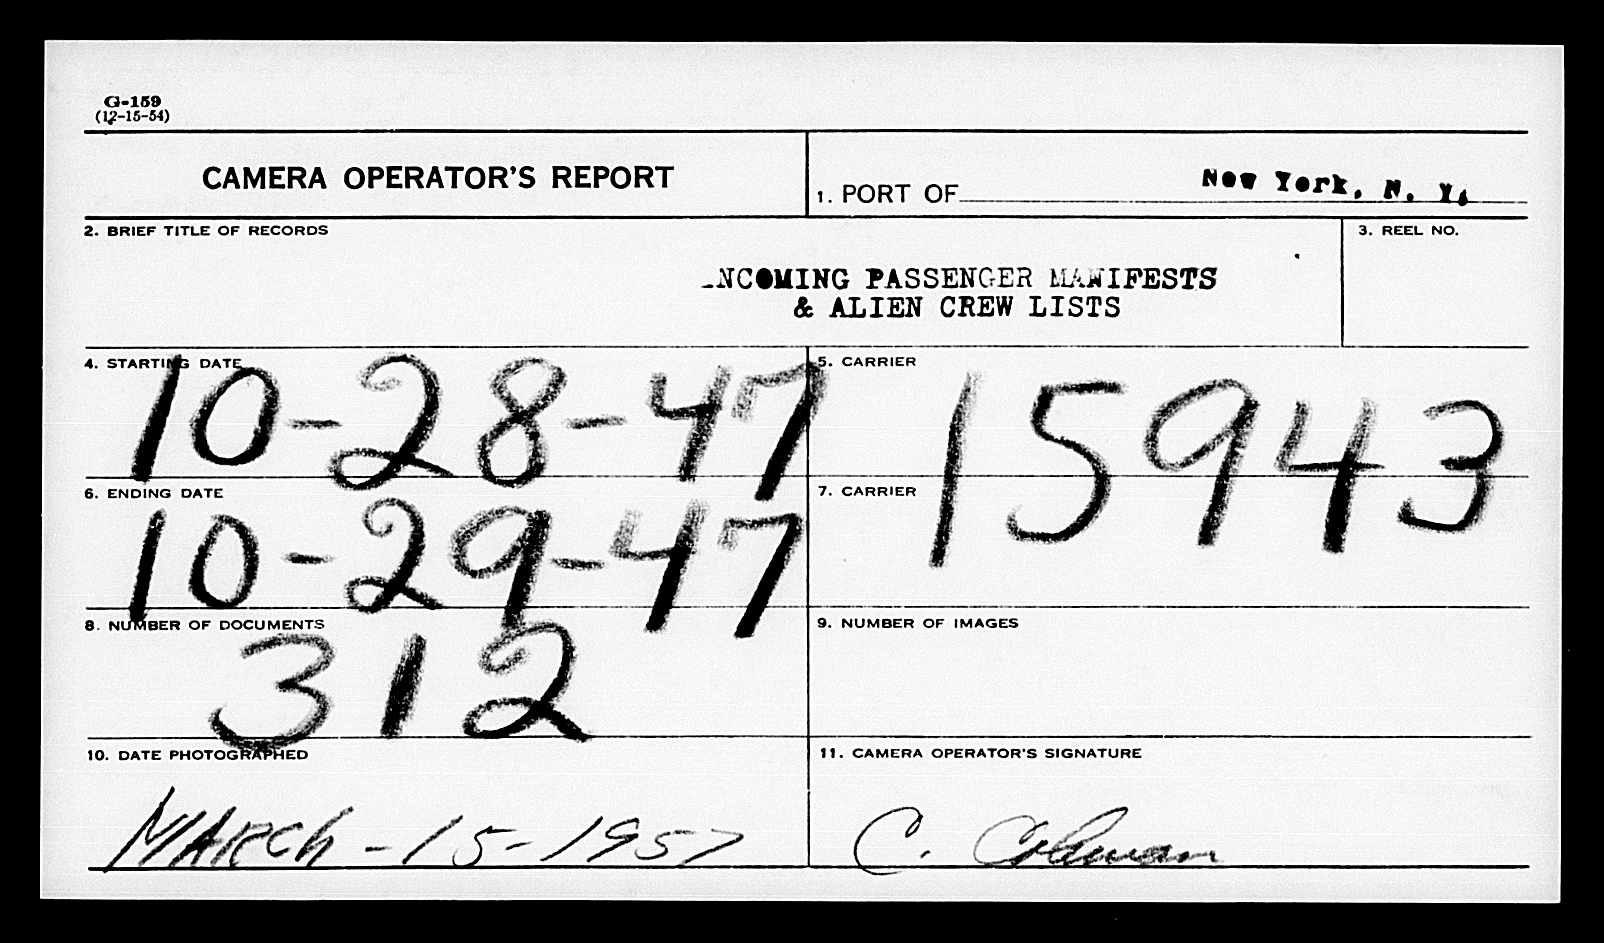 G-159
(12-15-54)
CAMERA OPERATOR'S REPORT
1. PORT OF New York, N. Y.
2. BRIEF TITLE OF RECORDS
3. REEL NO.
INCOMING PASSENGER MANIFESTS
& ALIEN CREW LISTS
4. STARTING DATE
10-28-47
5. CARRIER
15943
6. ENDING DATE
10-29-47
7. CARRIER
8. NUMBER OF DOCUMENTS
312
9. NUMBER OF IMAGES
10. DATE PHOTOGRAPHED
MARCh-15-1957
11. CAMERA OPERATOR'S SIGNATURE
C. Coleman